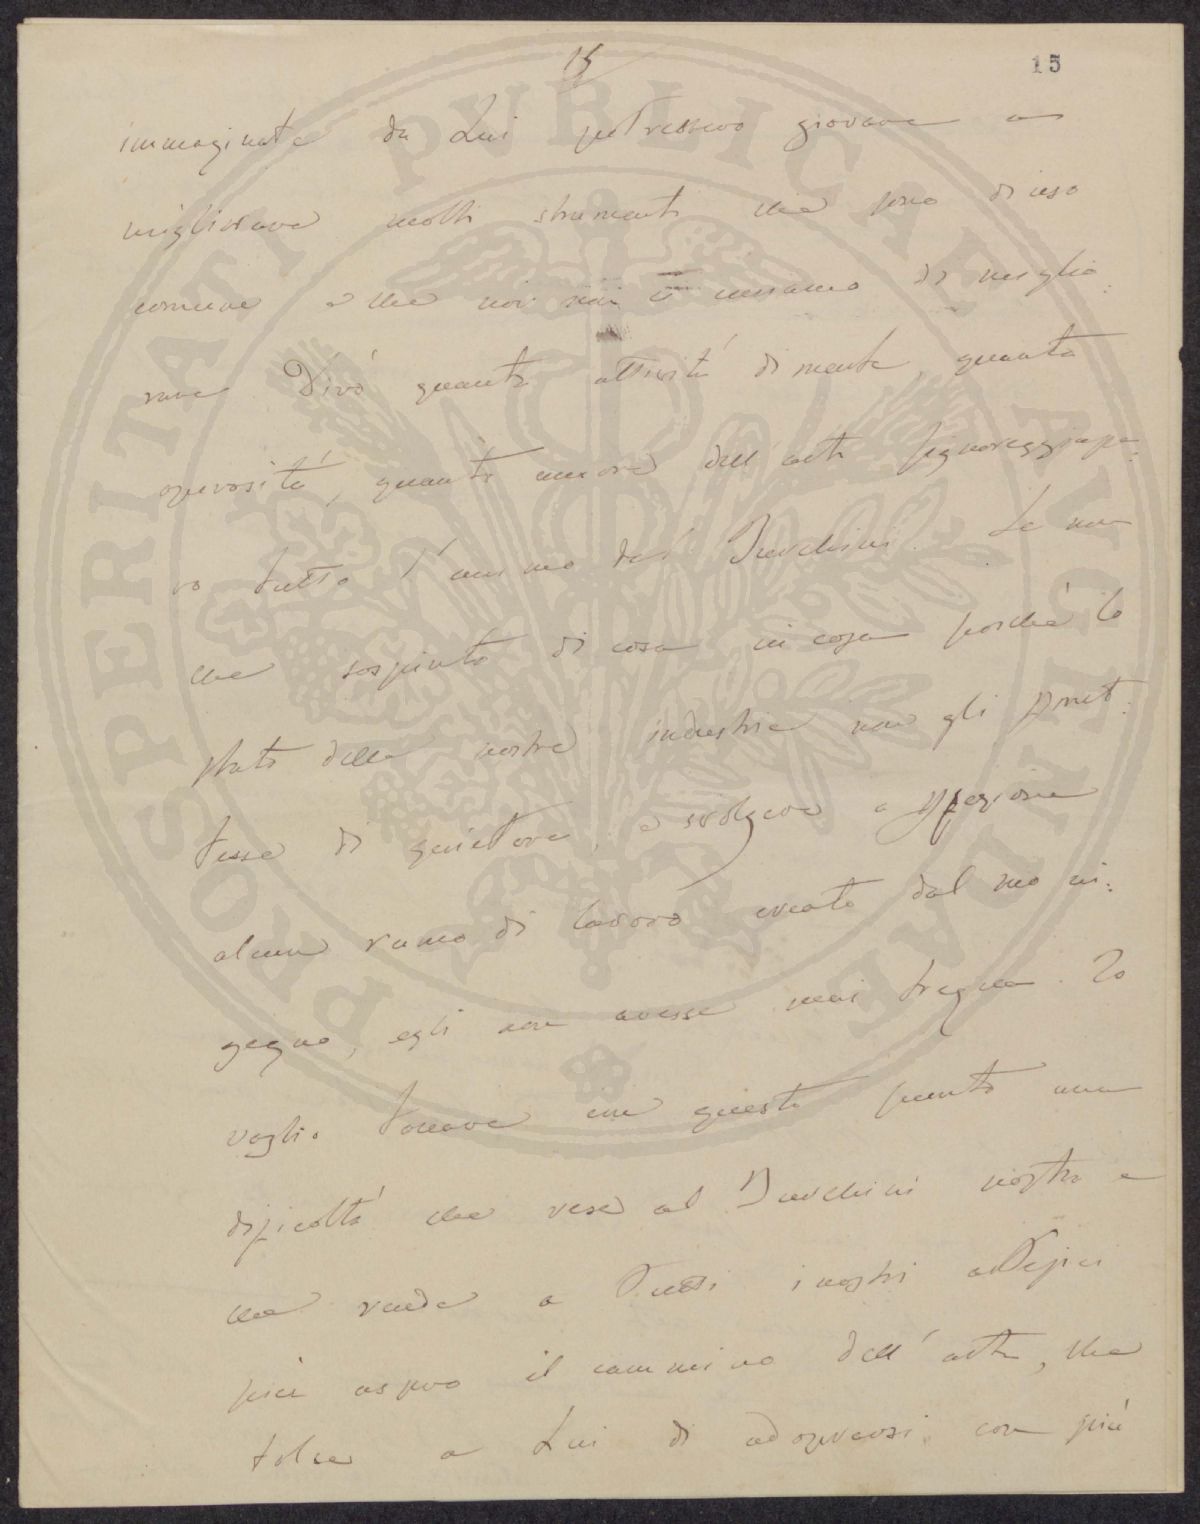 15
15
immaginate da Lui potessero giovare a
migliorare molti strumenti che sono di uso
comune e che noi miriamo di miglio:
rare Dirò quanta attività di mente, quanta
operosità, quanto amore dell'arte signoreggiasse:
ro tutto l'animo del Turchini. Le
che sospinto di cosa in cosa poiché lo
stato della nostra industria non gli permet:
tesse di quietare, e svolgere a perfezione
alcun ramo di lavoro creato dal suo in:
gegno, egli non avesse mai tregua. Io
voglio toccare in questo punto una
difficoltà che rese al Turchini nostro e
che rende a tutti i nostri artefici
più aspro il cammino dell'arte, che
tolse a Lui di adoprarsi con più
PROSPERITATI PVBLICAE AVGENDAE